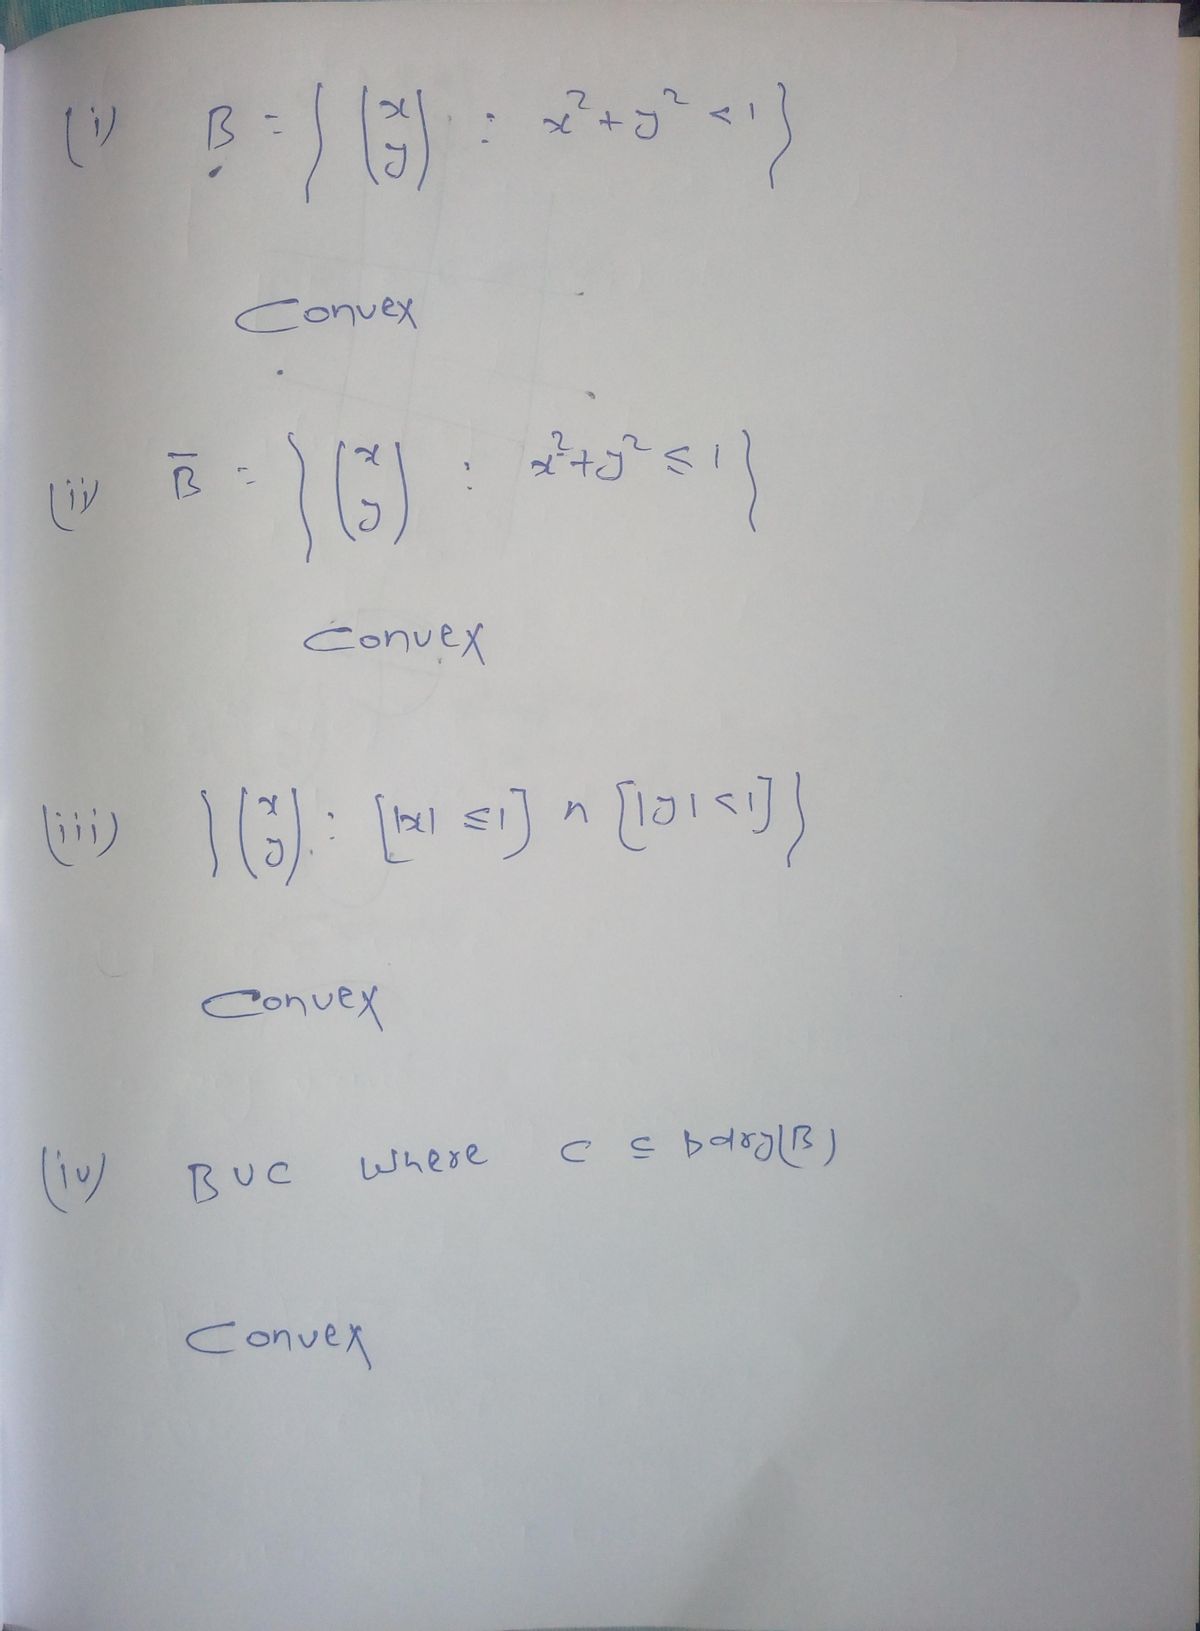 (i) B = { (x y) : x² + y² < 1 }
Convex
(ii) B̅ = { (x y) : x² + y² ≤ 1 }
Convex
(iii) { (x y) : [|x| ≤ 1] ∩ [|y| < 1] }
Convex
(iv) B ∪ C where C ⊆ bdry(B)
Convex